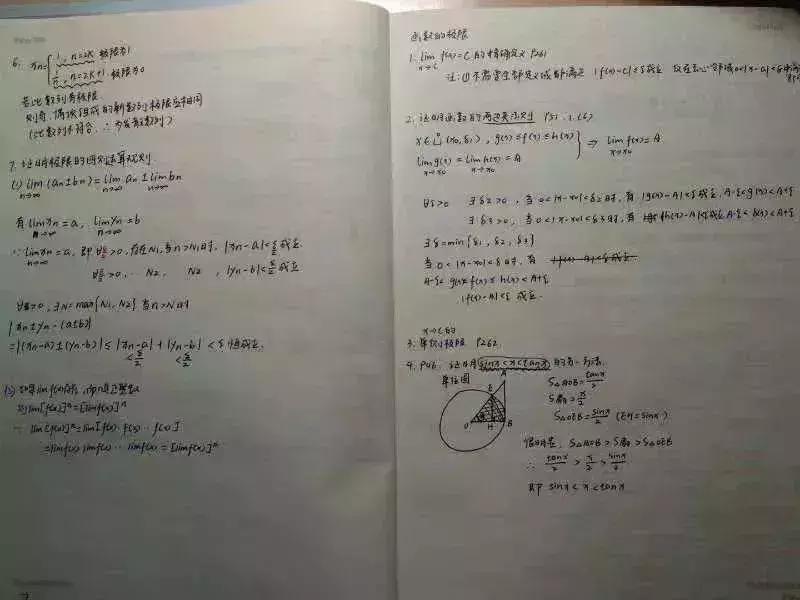 6. xn={1, n=2k 极限为1
1/n, n=2k+1, 极限为0
若此数列有极限
则奇、偶项组成的新数列极限应相同
(此数列不符合, ∴为发散数列)
7. 证明极限的四则运算规则
(1) lim n→∞ (an±bn)=lim n→∞ an ± lim n→∞ bn
有 lim n→∞ xn=a, lim n→∞ yn=b
∵ lim n→∞ xn=a, 即 ∀ε>0, 存在N1, 当n>N1时, |xn-a|<ε/2 成立
∀ε>0, ‥ N2, N2, |yn-b|<ε/2 成立
∀ε>0, ∃N=max{N1, N2} 当n>N时
|xn±yn-(a±b)|
=|(xn-a)±(yn-b)|≤|xn-a|+|yn-b|<ε 恒成立.
<ε/2 <ε/2
(3) 如果limf(x)存在, 而n是正整数
则lim[f(x)]ⁿ=[limf(x)]ⁿ
lim[f(x)]ⁿ=lim[f(x)·f(x)…f(x)]
=limf(x)·limf(x)…limf(x)=[limf(x)]ⁿ
函数的极限
1. lim x→c f(x)=C 的精确定义 P261
注: ①不需要全部定义域都满足 |f(x)-C|<ε成立 仅在去心邻域0<|x-a|<δ
2. 证明函数的两边夹法则 P51, 1.(6)
x∈Ů(x0,δ1), g(x)≤f(x)≤h(x)
lim x→x0 g(x)=lim x→x0 h(x)=A } ⇒ lim x→x0 f(x)=A
∀ε>0 ∃δ2>0, 当0<|x-x0|<δ2时, 有 |g(x)-A|<ε成立, A-ε<g(x)<A+ε
∃δ3>0, 当0<|x-x0|<δ3时, 有 |h(x)-A|<ε成立, A-ε<h(x)<A+ε
∃δ=min{δ1, δ2, δ3}
当0<|x-x0|<δ时, 有
A-ε<g(x)≤f(x)≤h(x)<A+ε
|f(x)-A|<ε 成立.
x→c的
3. 单侧极限 P262
4. P46, 证明sinx<x<tanx的另一方法.
单位圆
A
E
O
H
B
S△AOB=tanx/2
S扇=x/2
S△OEB=sinx/2 (EH=sinx)
很明显, S△AOB>S扇>S△OEB
∴ tanx/2 > x/2 > sinx/2
即 sinx<x<tanx